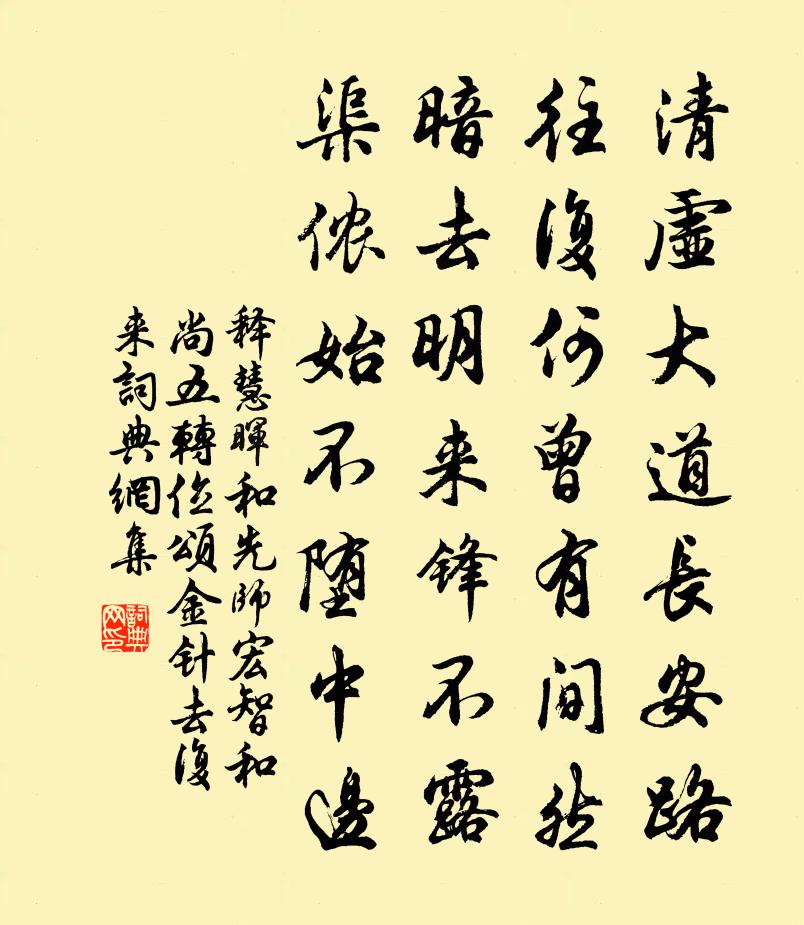 清虛大道長安路
往復何曾有间然
暗去明来锋不露
渠侬始不堕中邊
释慧暉和先师宏智和
尚五轉位頌金针去復
来詞典網集
詞典网印